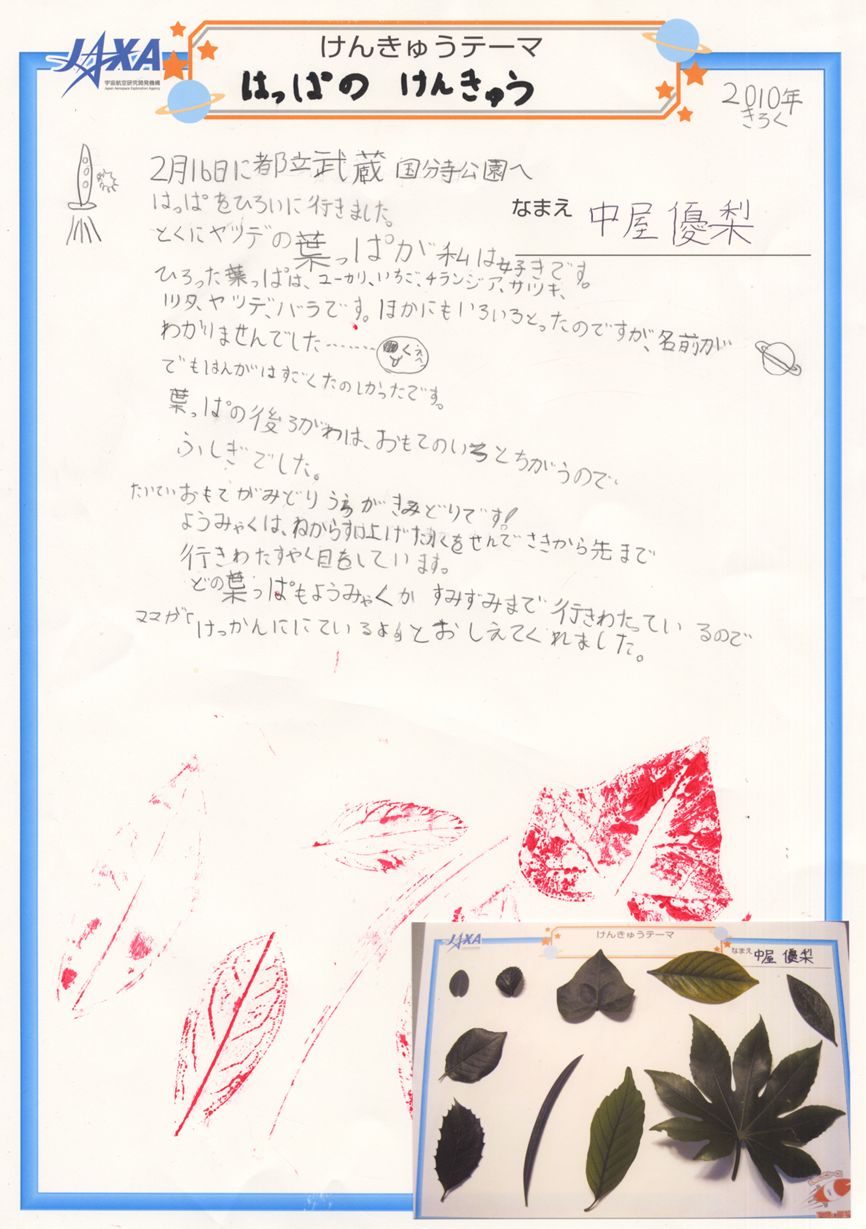 JAXA
宇宙航空研究開発機構
Japan Aerospace Exploration Agency
けんきゅうテーマ
はっぱの けんきゅう
2010年
きろく
なまえ 中屋 優梨
2月16日に都立武蔵国分寺公園へ
はっぱをひろいに行きました。
とくにヤツデの葉っぱが私は好きです。
ひろった葉っぱは、ユーカリ、いちご、チランジア、サツキ、
ツタ、ヤツデ、バラです。ほかにもいろいろとったのですが、名前が
わかりませんでした………
でもはんがはすごくたのしかったです。
葉っぱの後ろがわは、おもてのいろとちがうので
ふしぎでした。
たいていおもてがみどりうらがきみどりです!
ようみゃくは、ねからすい上げた水をせんでさきから先まで
行きわたすやく目をしています。
どの葉っぱもようみゃくが すみずみまで行きわたっているので
ママが「けっかんににているよ」とおしえてくれました。
JAXA
けんきゅうテーマ
なまえ 中屋 優梨